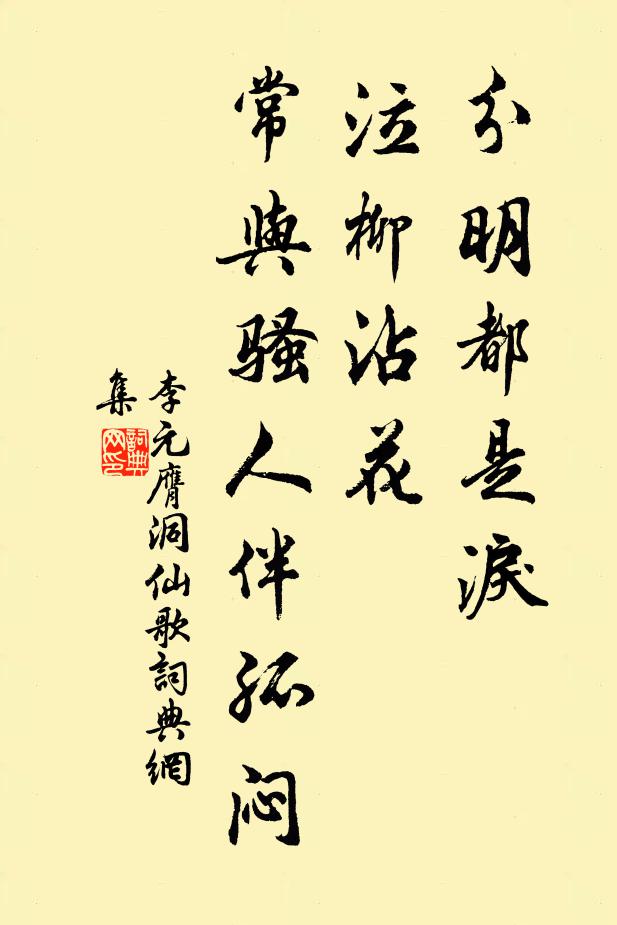 分明都是淚
泣柳沾花
常與騷人伴孤闷
李元膺洞仙歌詞典網
集
詞典
网印